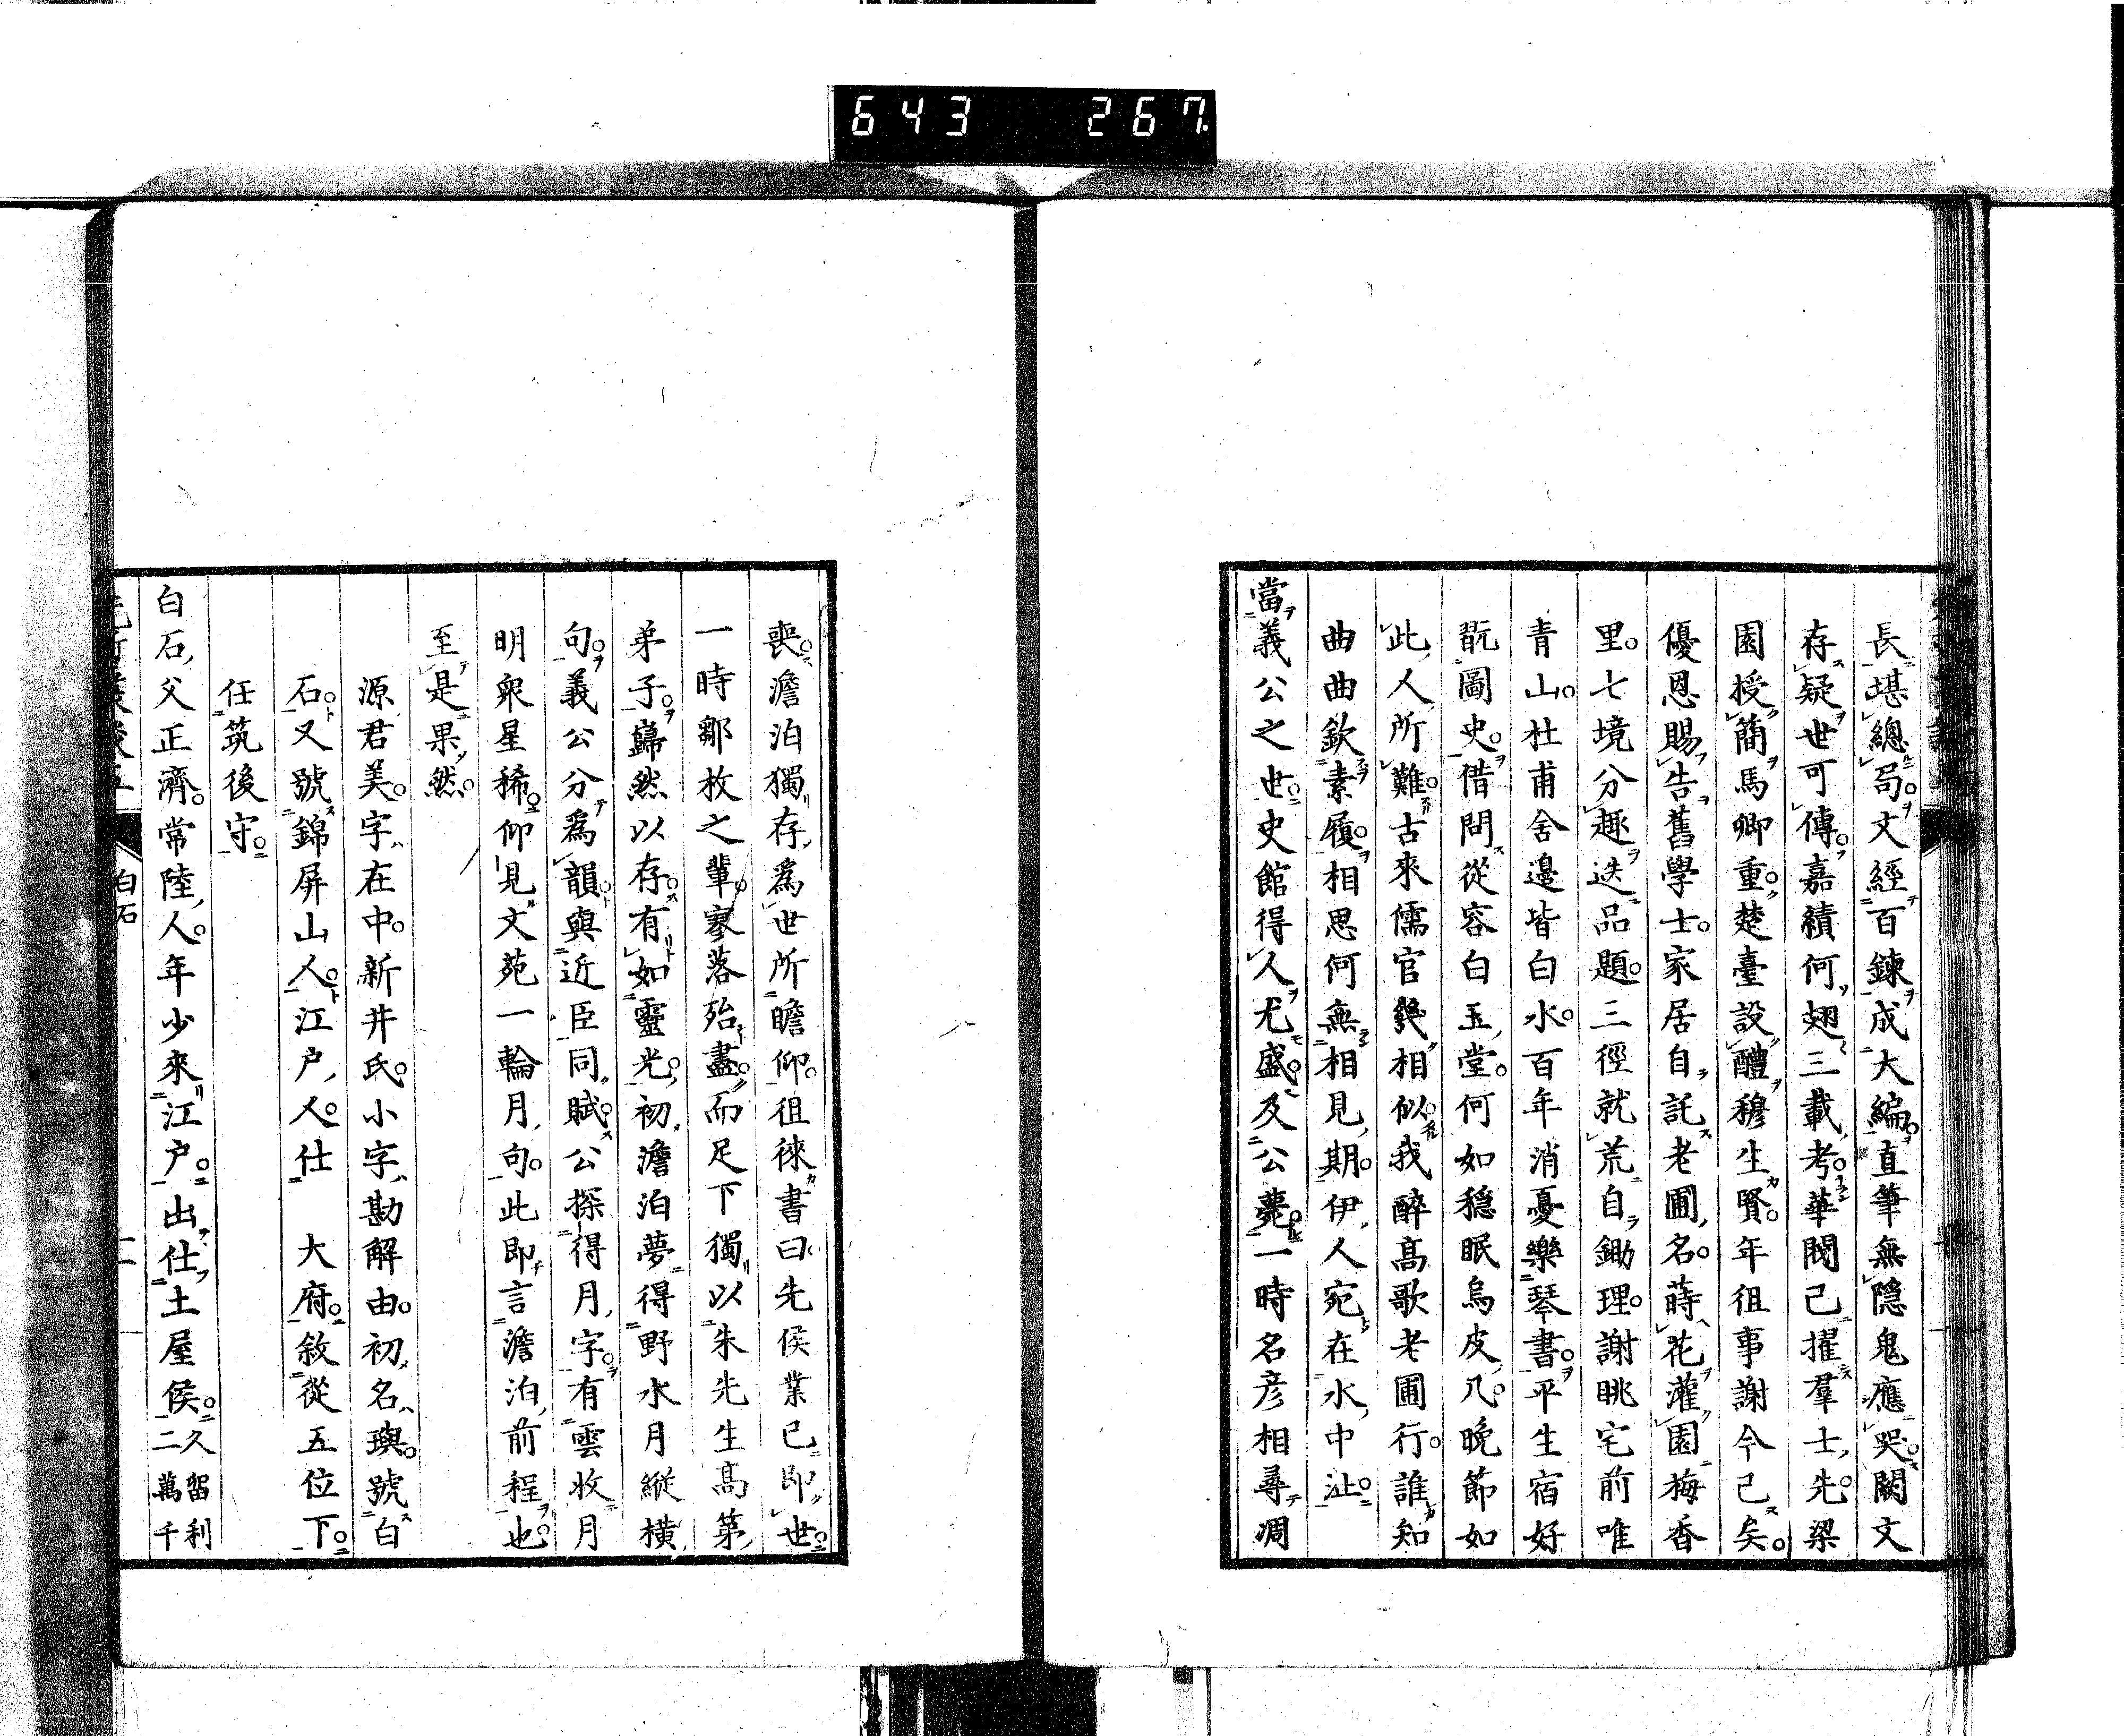 643 267
長堪總局文經百鍊成大編直筆無隱鬼應哭闕文
存疑世可傳嘉績何翅三載考華閥已擢羣士先梁
園授簡馬卿重楚臺設醴穆生賢年徂事謝今已矣
優恩賜告舊學士家居自託老圃名蒔花灌園梅香
里七境分趣迭品題三徑就荒自鋤理謝眺宅前唯
青山杜甫舍邊皆白水百年消憂樂琴書平生宿好
翫圖史借問從容白玉堂何如穏眠烏皮几晚節如
此人所難古來儒官幾相似我醉高歌老圃行誰知
曲曲欽素履相思何無相見期伊人宛在水中沚
當義公之世史館得人尤盛及公薨一時名彥相尋凋
喪澹泊獨存爲世所瞻仰徂徠書曰先侯業已即世
一時鄒枚之輩寥落殆盡而足下獨以朱先生高第
弟子巋然以存有如靈光初澹泊夢得野水月縱橫
句義公分爲韻與近臣同賦公探得月字有雲收月
明衆星稀仰見文苑一輪月句此即言澹泊前程也
至是果然
源君美字在中新井氏小字勘解由初名璵號白
石又號錦屏山人江戶人仕 大府敘從五位下
任筑後守
白石父正濟常陸人年少來江戶出仕土屋侯久留利二萬千
白石
二